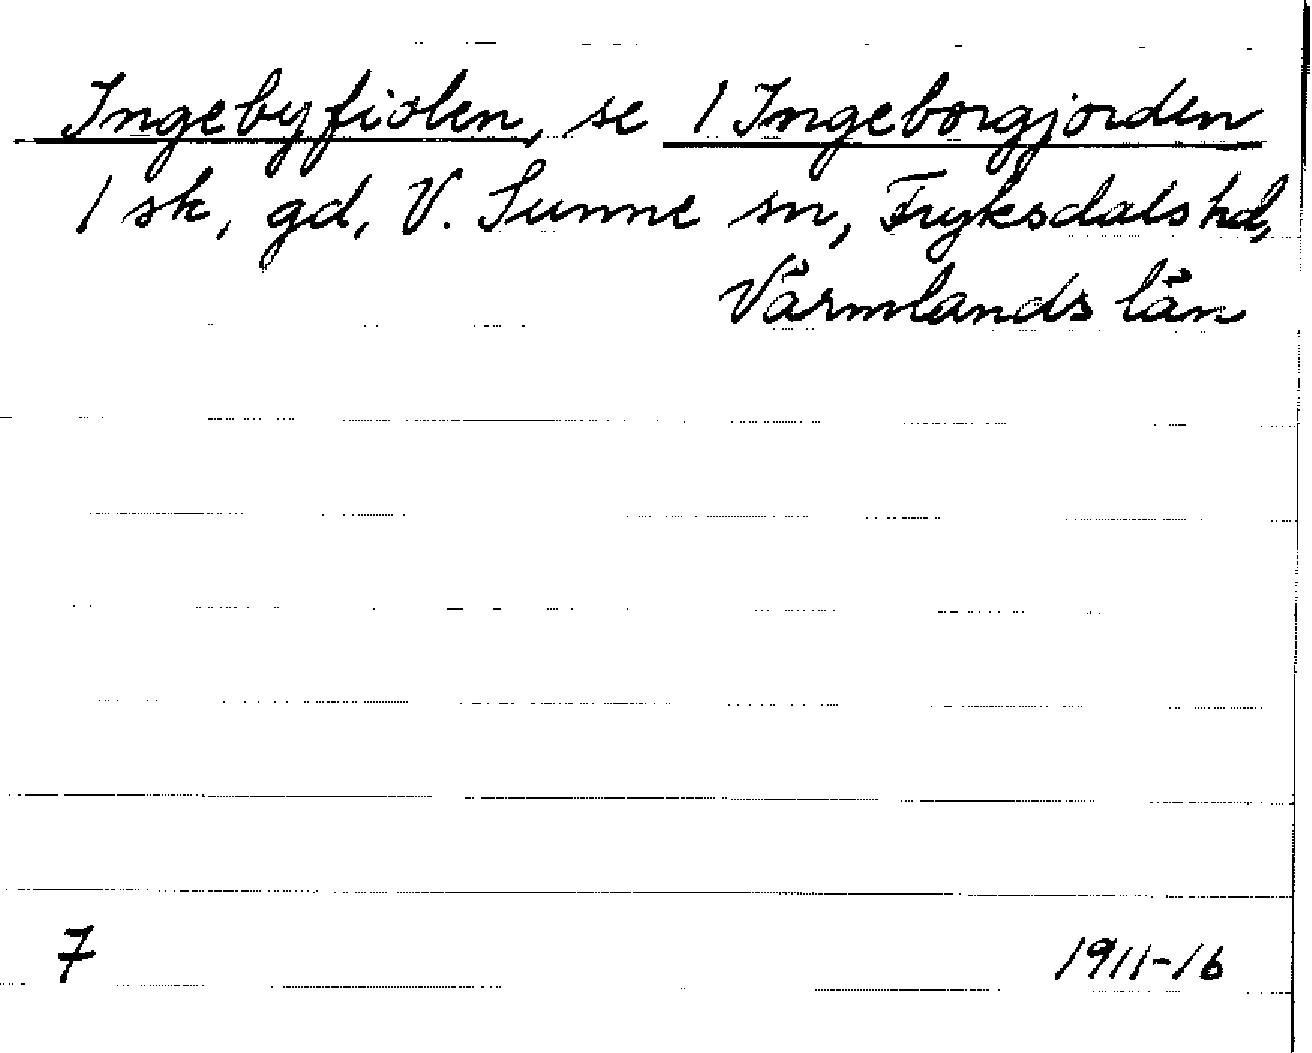 Ingebyfiolen, se 1 Ingeborgjorden
1 sk, gd, V. Sunne sn, Fryksdals hd,
Värmlands län
7 1911-16